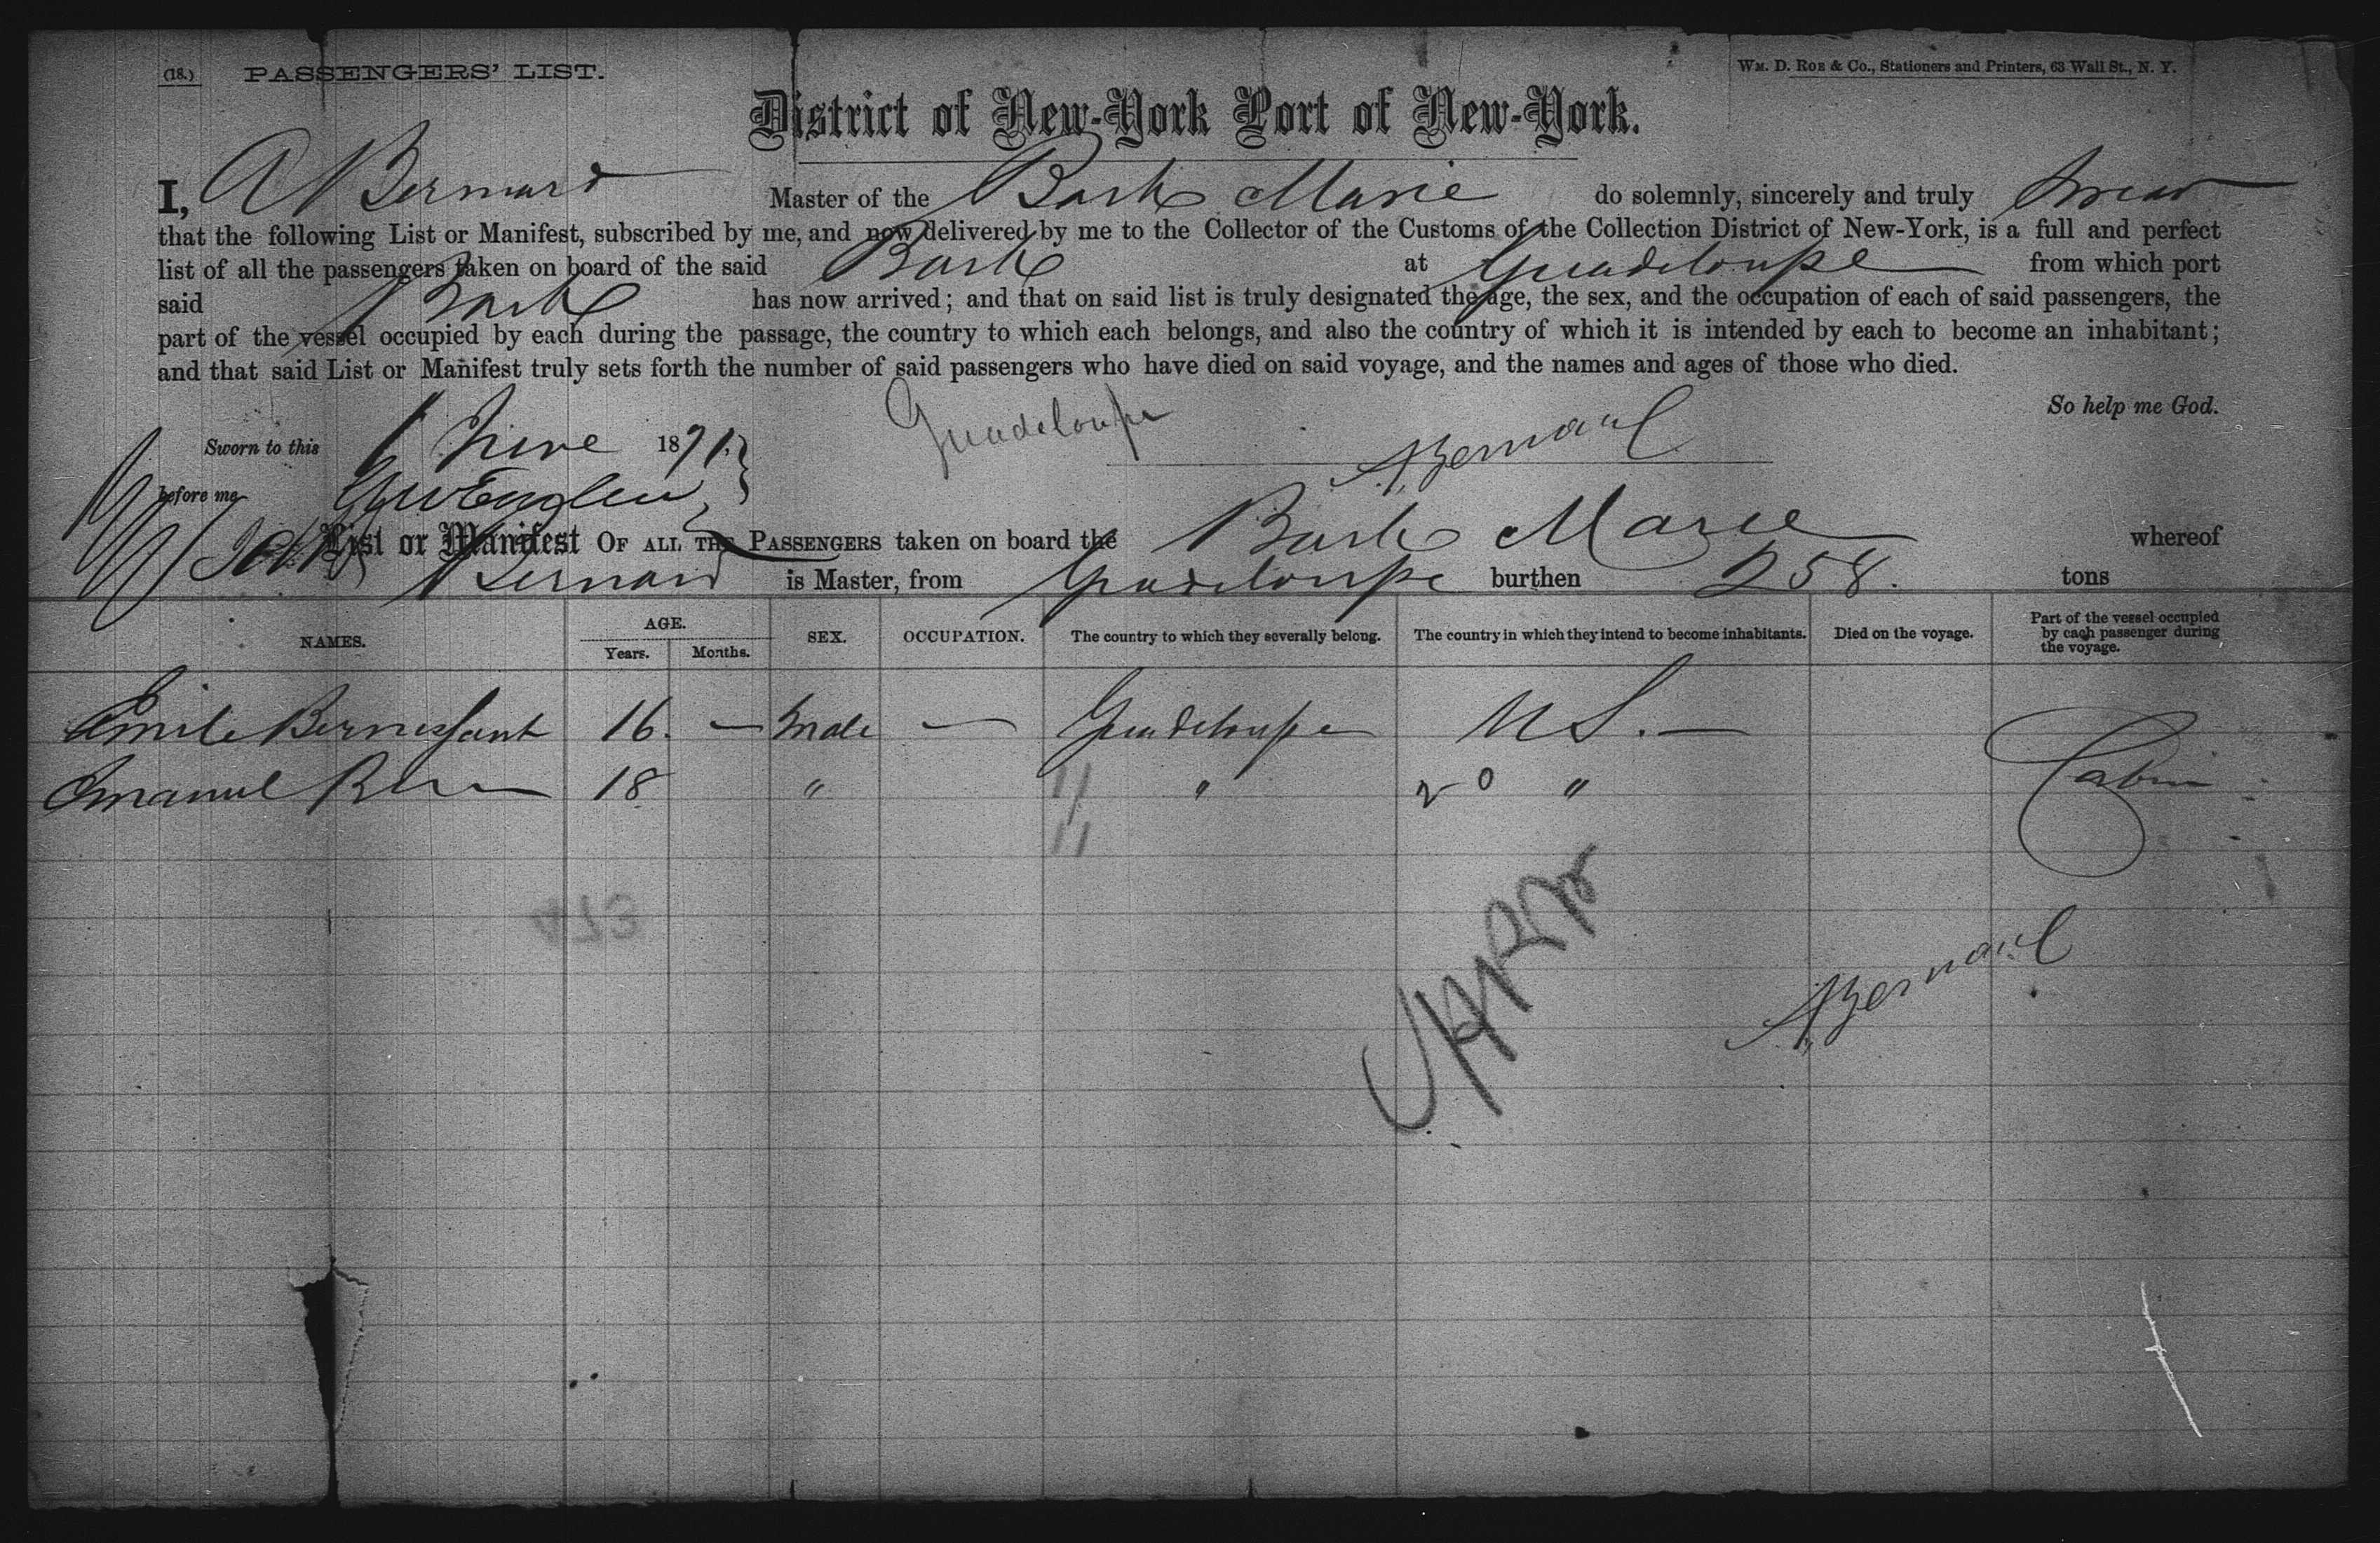 (18.) PASSENGERS' LIST.
WM. D. ROE & Co., Stationers and Printers, 63 Wall St., N. Y.
District of New-York Port of New-York.
I, A Bernard Master of the Bark Marie do solemnly, sincerely and truly swear
that the following List or Manifest, subscribed by me, and now delivered by me to the Collector of the Customs of the Collection District of New-York, is a full and perfect
list of all the passengers taken on board of the said Bark at Guadeloupe from which port
said Bark has now arrived; and that on said list is truly designated the age, the sex, and the occupation of each of said passengers, the
part of the vessel occupied by each during the passage, the country to which each belongs, and also the country of which it is intended by each to become an inhabitant;
and that said List or Manifest truly sets forth the number of said passengers who have died on said voyage, and the names and ages of those who died.
So help me God.
Guadeloupe
Sworn to this 1 June 1871.
ABernard
before me
List or Manifest OF ALL THE PASSENGERS taken on board the Bark Marie whereof
Bernard is Master, from Guadeloupe burthen 258. tons
NAMES. AGE. Years. Months. SEX. OCCUPATION. The country to which they severally belong. The country in which they intend to become inhabitants. Died on the voyage. Part of the vessel occupied by each passenger during the voyage.
Emile 16. — Male — Guadeloupe U S. —
Emanuel 18 " " " Cabin
ABernard